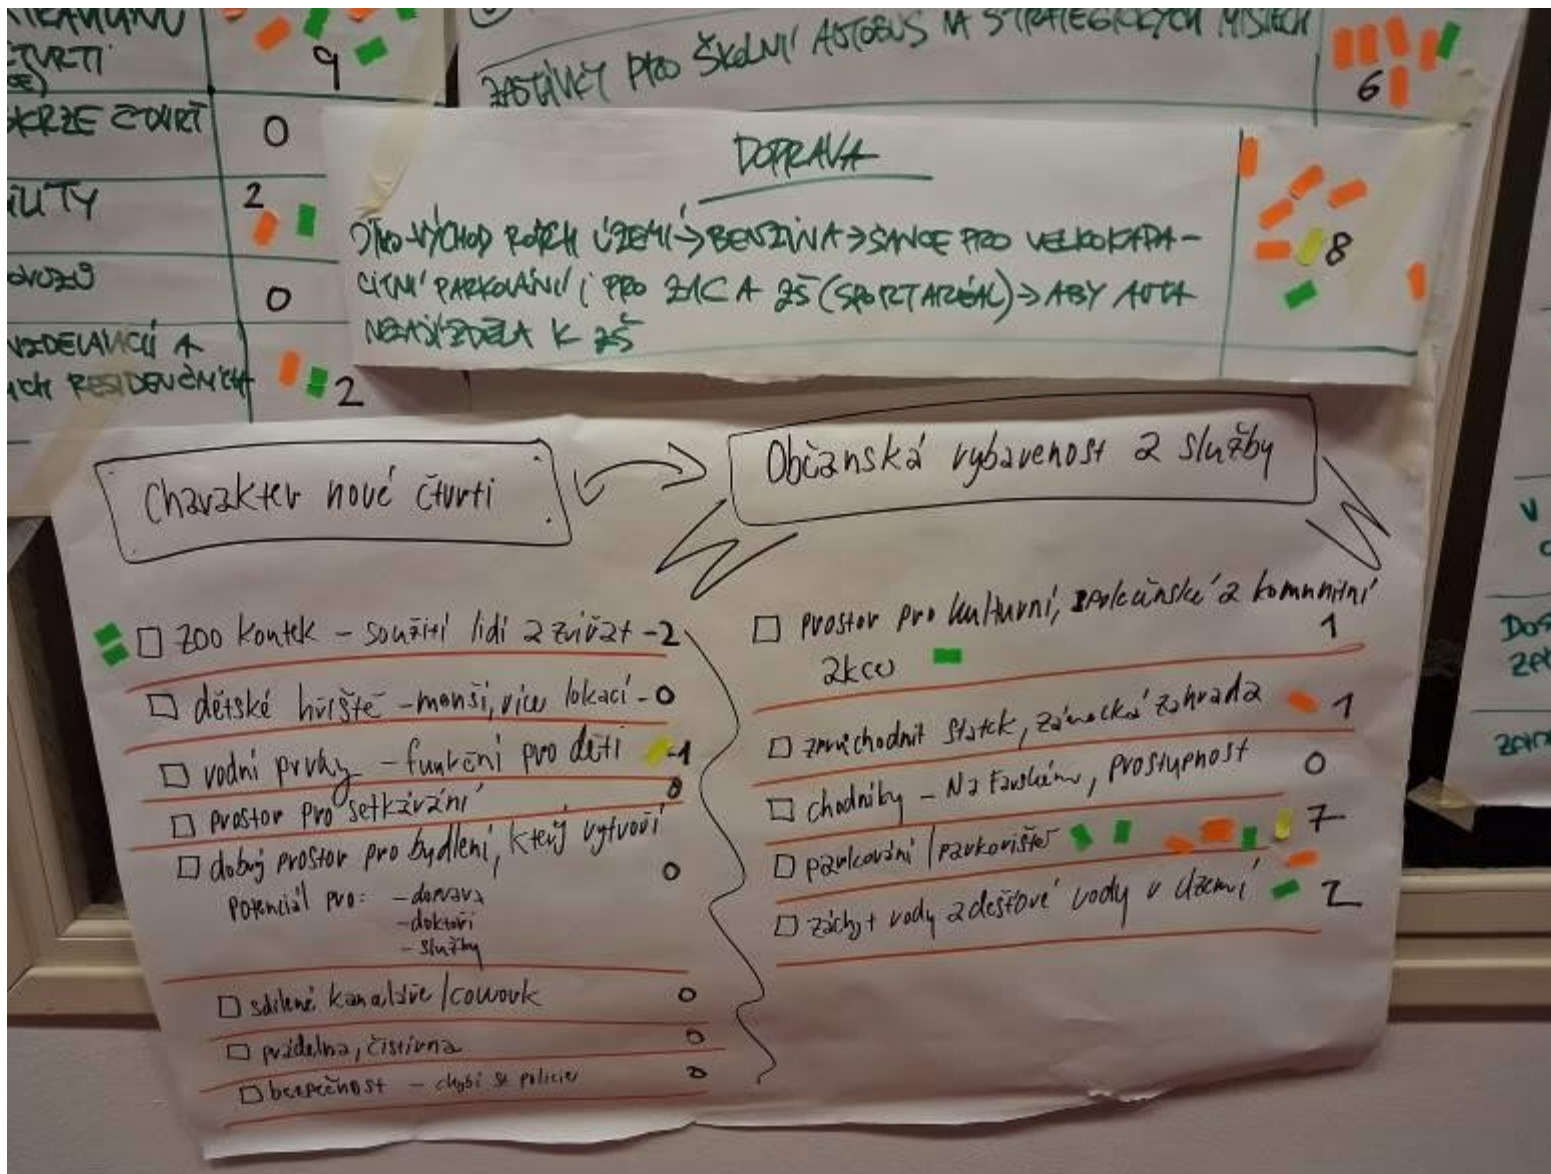 ČTVRTI
9
SKRZE ČTVRŤ
0
2
0
VZDĚLÁVACÍ A
RESIDENČNÍCH
2
ZASTÁVKY PRO ŠKOLNÍ AUTOBUS NA STRATEGICKÝCH MÍSTECH
6
DOPRAVA
ÚZEMÍ → BENZINA → ŠANCE PRO VELKOKAPA-
CITNÍ PARKOVÁNÍ I PRO ZÁC A ZŠ (SPORT AREÁL) → ABY AUTA
NEZAJÍŽDĚLA K ZŠ
8
Charakter nové čtvrti
Občanská vybavenost a služby
ZOO koutek – soužití lidí a zvířat – 2
dětské hřiště – menší, více lokací – 0
vodní prvky – funkční pro děti – 1
prostor pro setkávání 0
dobrý prostor pro bydlení, který vytvoří
potenciál pro: – doprava 0
– doktoři
– služby
sdílené kanceláře / cowork 0
prádelna, čistírna 0
bezpečnost – chybí se policie 0
prostor pro kulturní, společenské a komunitní
akce 1
zprůchodnit statek, zámecká zahrada 1
chodníky – Na Farském, prostupnost 0
parkování / parkoviště 7
záchyt vody a dešťové vody v území 2
V